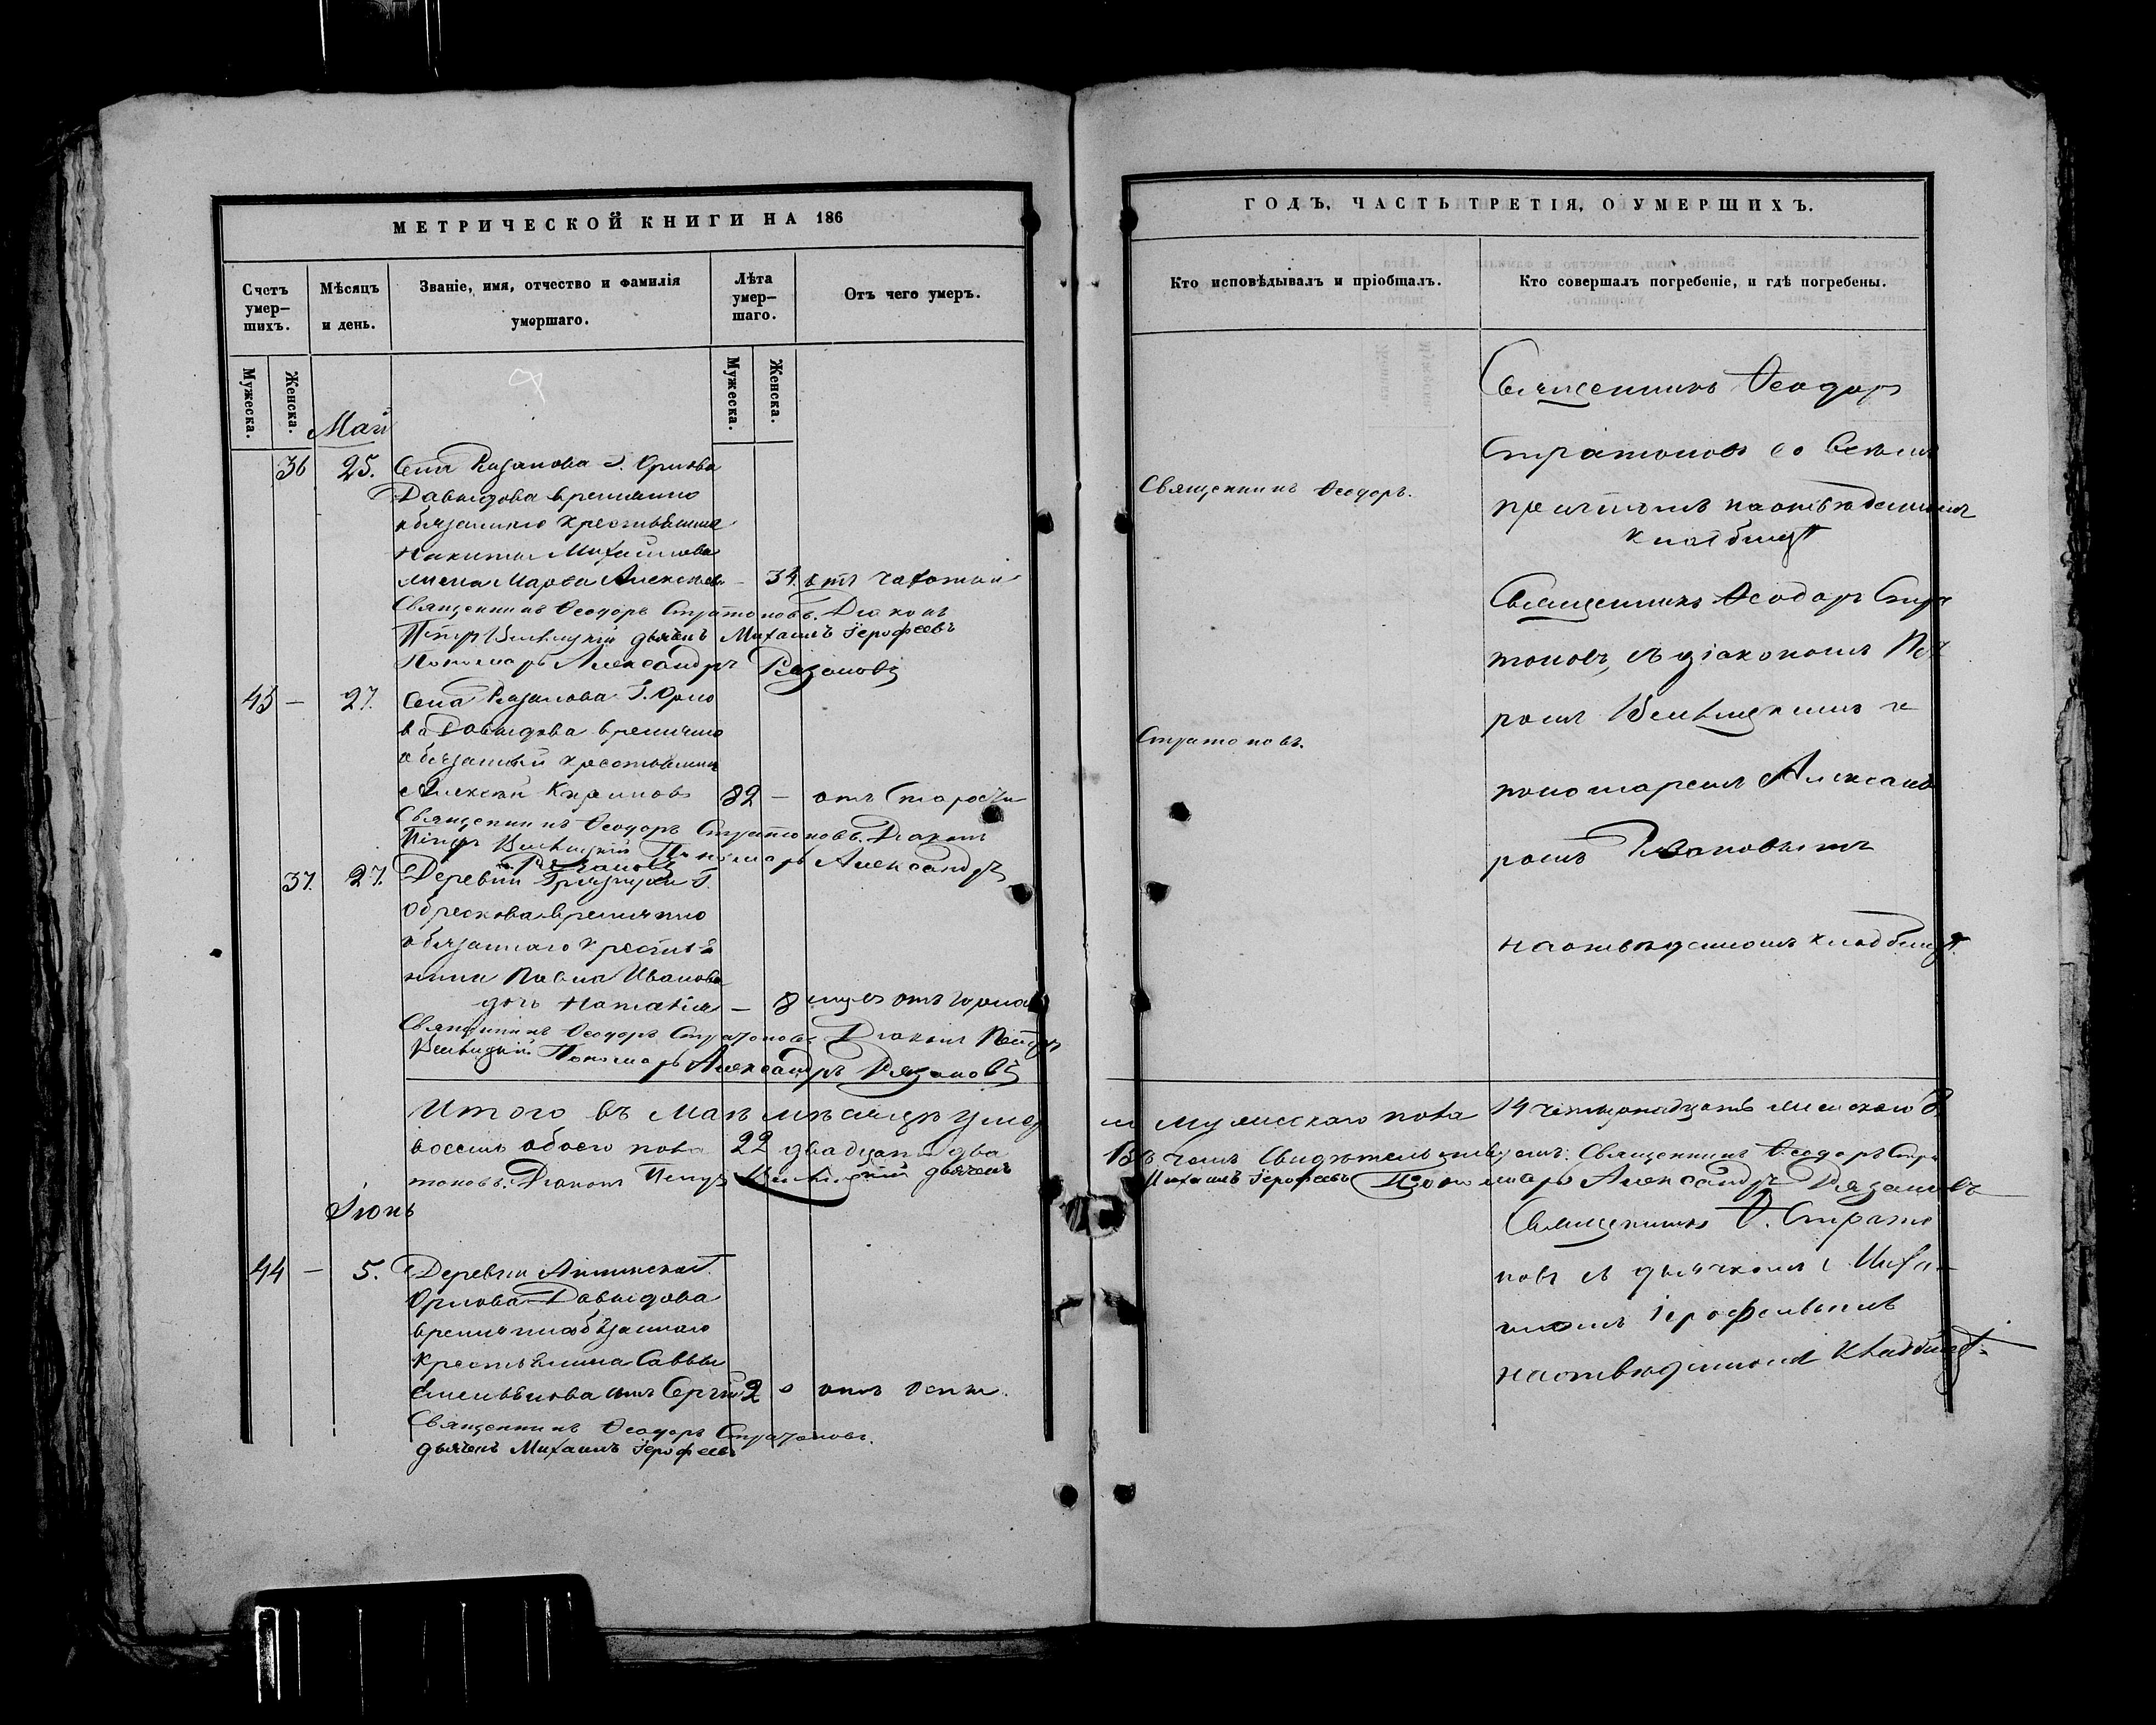 МЕТРИЧЕСКОЙ КНИГИ НА 186
Счетъ умер-шихъ.
Мѣсяцъ и день.
Званіе, имя, отчество и фамилія умершаго.
Лѣта умер-шаго.
Отъ чего умеръ.
Мужеска.
Женска.
Мужеска.
Женска.
Май
36 25. Села Рязанова Г. Орлова
Давыдова временно
обязаннаго крестьянина
Никиты Михайлова
жена Марѳа Алексѣева – 34 отъ чахотки
Священникъ Ѳеодоръ Стратоновъ. Діаконъ
Петръ дьячекъ Михаилъ Іерофеевъ
Пономарь Александръ Рязановъ
43 – 27. Села Рязанова Г. Орло
ва Давыдова временно
обязанный крестьянинъ
Алексѣй 82 – отъ старости
Священникъ Ѳеодоръ Стратоновъ. Діаконъ
Петръ Пономарь Александръ
Рязановъ
37. 27. Деревни Г.
Обрескова временно
обязаннаго крестья
нина Павла Иванова
дочь Наталія – 8 отъ
Священникъ Ѳеодоръ Стратоновъ Діаконъ Петръ
Пономарь Александръ Рязановъ
Итого въ Маѣ мѣсяцѣ умер
восемь обоего пола 22 двадцать два
тоновъ. Діаконъ Петръ дьячекъ
Іюнь
44 – 5. Деревни Г.
Орлова-Давыдова
временнообязаннаго
крестьянина Саввы
Емельянова сынъ Сергій 2 отъ оспы.
Священникъ Ѳеодоръ Стратоновъ.
дьячекъ Михаилъ Іерофеевъ
ГОДЪ, ЧАСТЬ ТРЕТІЯ, О УМЕРШИХЪ.
Кто исповѣдывалъ и пріобщалъ.
Кто совершалъ погребеніе, и гдѣ погребены.
Священникъ Ѳеодоръ.
Стратоновъ.
Священникъ Ѳеодоръ
Стратоновъ со всѣмъ
причтомъ на отведенномъ
кладбищѣ
Священникъ Ѳеодоръ Стра
тоновъ, съ діакономъ Пет
ромъ и
пономаремъ Александ
ромъ Рязановымъ
на отведенномъ кладбищѣ.
ло мужескаго пола 14 четырнадцать женскаго 8
Въ чемъ свидѣтельствуемъ: Священникъ Ѳеодоръ Стра
Михаилъ Іерофеевъ Пономарь Александръ Рязановъ
Священникъ Ѳ. Страто
новъ съ дьячкомъ Миха
иломъ Іерофеевымъ
на отведенномъ кладбищѣ.